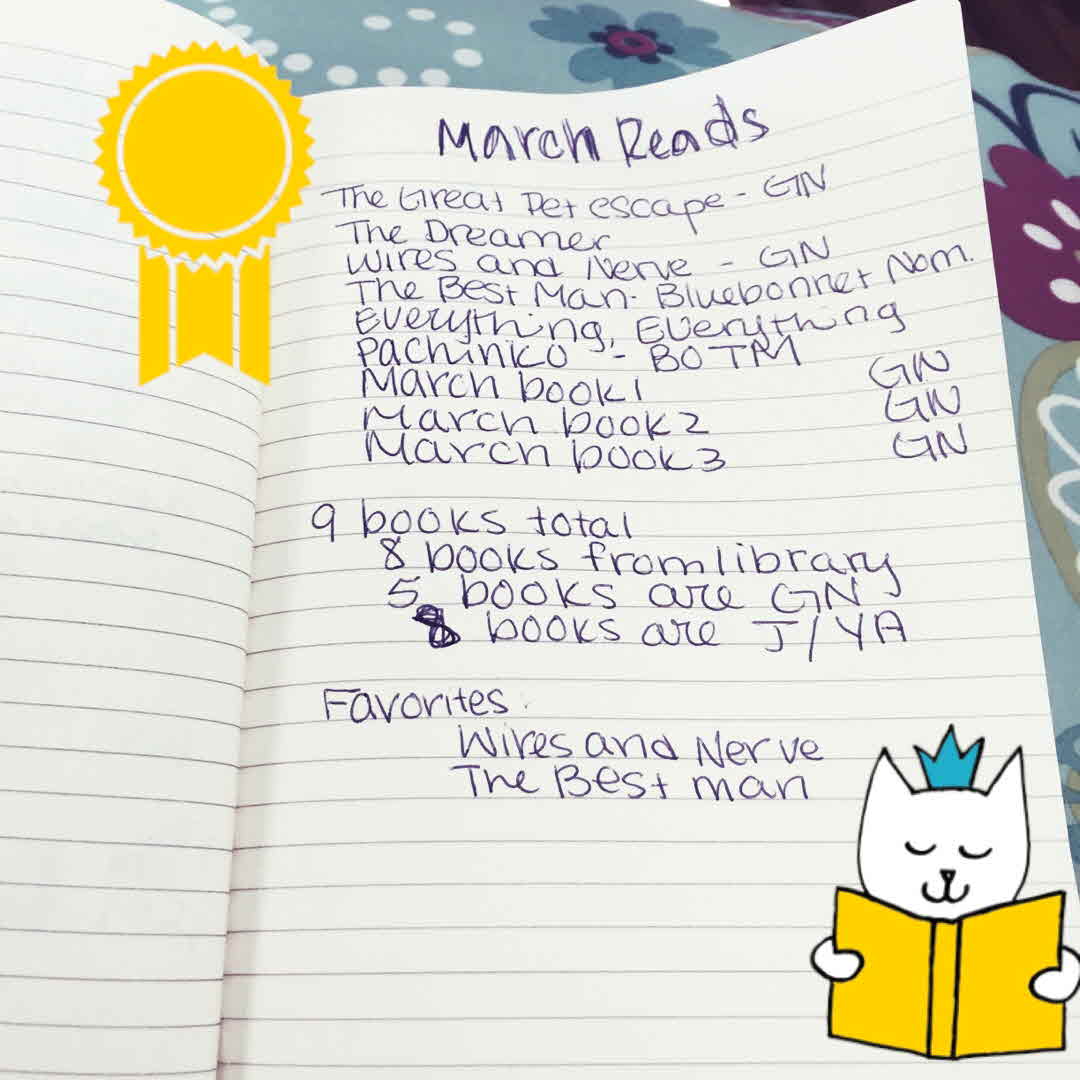 March Reads
The Great Pet escape - GN
The Dreamer
Wires and Nerve - GN
The Best Man - Bluebonnet Nom.
Everything, Everything
Pachinko - BOTM
March book 1 GN
March book 2 GN
March book 3 GN
9 books total
8 books from library
5 books are GN
8 books are J/YA
Favorites:
Wires and Nerve
The Best man